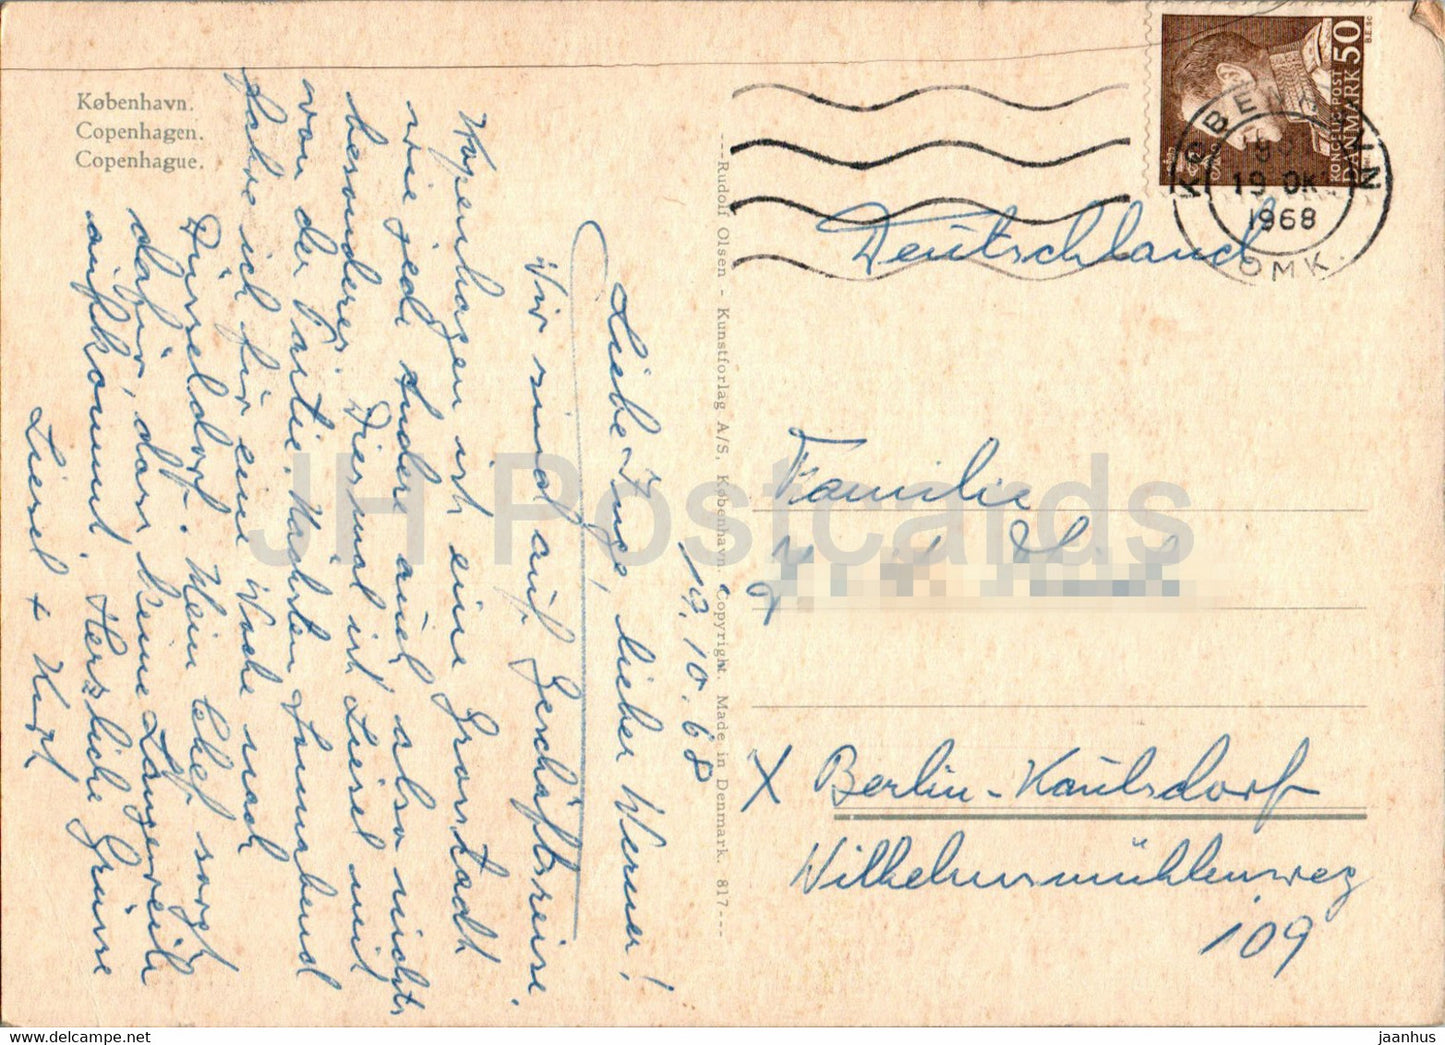 København.
Copenhagen.
Copenhague.
19.10.68
Liebe Inge, lieber Werner!
Wir sind auf Geschäftsreise.
Kopenhagen ist eine Grosstadt
wie jede andere auch also nichts
besonderes. Diesmal ist Liesel mit
von der Partie. Nächsten Sonnabend
fahre ich für eine Woche nach
Düsseldorf. Mein Chef sorgt
dafür, dass keine Langeweile
aufkommt. Herzliche Grüsse
Liesel + Kurt
---Rudolf Olsen - Kunstforlag A/S, København. Copyright. Made in Denmark. 817---
KØBENHAVN
19 OK
1968
OMK.
KONGELIG POST
DANMARK 50
Deutschland
Familie
X Berlin-Kaulsdorf
Wilhelmsmühlenweg
109
JH Postcards
www.delcampe.net
jaanhus